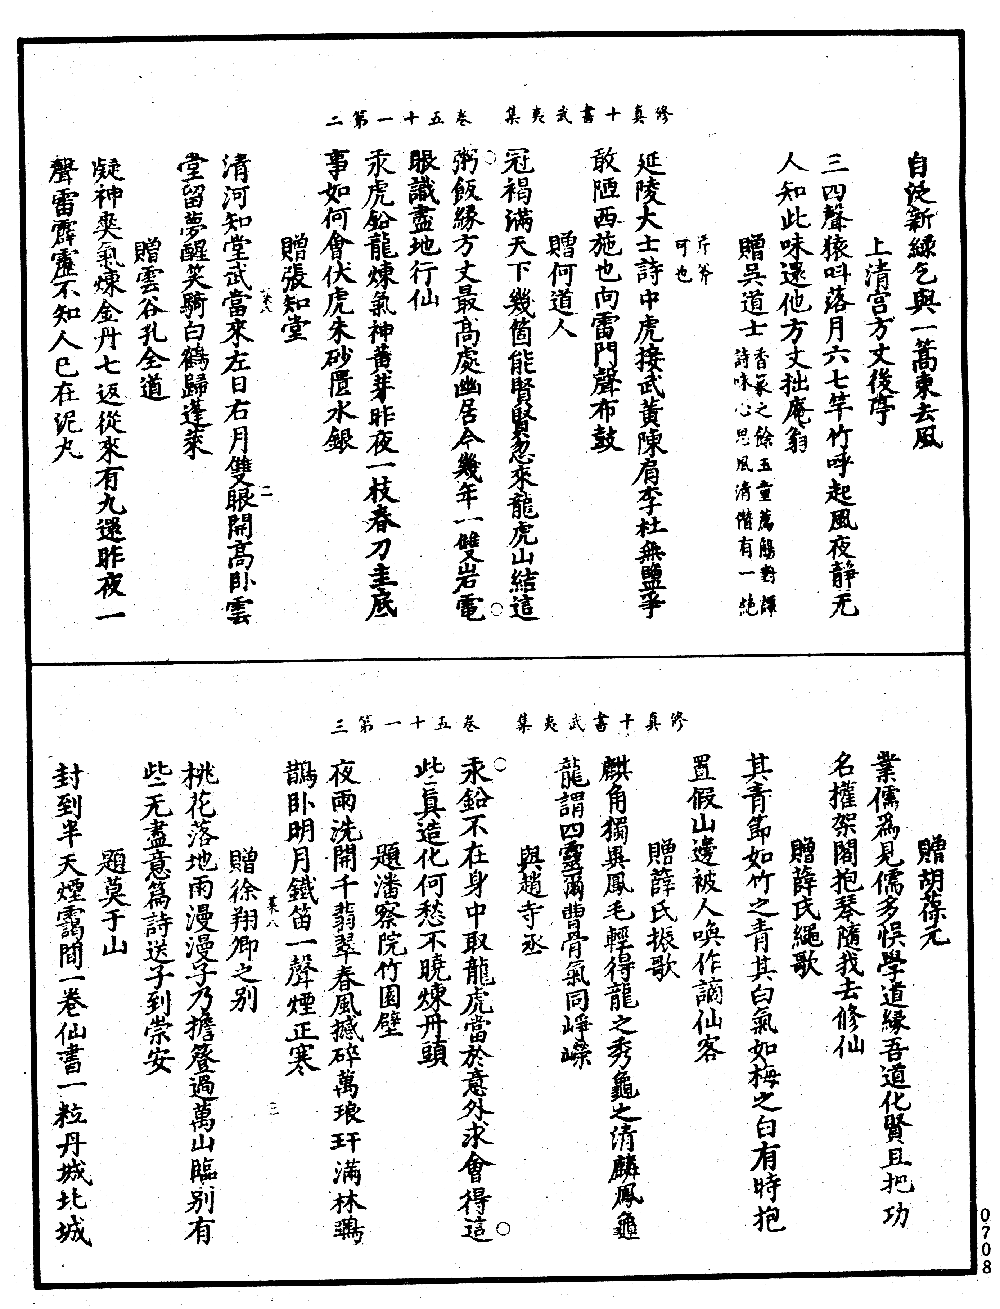 修真十書武夷集　卷五十一第二
自泛新綠乞與一蒿東去風
上清宮方丈後亭
三四聲猿呌落月六七竿竹呼起風夜靜无
人知此味還他方丈拙庵翁
贈吳道士
香篆之餘玉童薦觴對譚
詩味心思風清僭有一絶
斧斧
可也
延陵大士詩中虎接武黃陳肩李杜無鹽爭
敢陋西施也向雷門聲布鼓
贈何道人
冠褐滿天下幾箇能賢賢忽來龍虎山結這
粥飯緣方丈最高處幽居今幾年一雙岩電
眼識盡地行仙
汞虎鉛龍煉氣神黃芽昨夜一枝春刀圭底
事如何會伏虎朱砂匱水銀
贈張知堂
清河知堂武當來左日右月雙眼開高卧雲
堂留夢醒笑騎白鶴歸蓬萊
贈雲谷孔全道
凝神爽氣煉金丹七返從來有九還昨夜一
聲雷霹靂不知人已在泥丸
修真十書武夷集　卷五十一第三
贈胡葆元
業儒爲見儒多悞學道緣吾道化賢且把功
名權架閣抱琴隨我去修仙
贈薛氏繩歌
其青節如竹之青其白氣如梅之白有時抱
置假山邊被人喚作謫仙客
贈薛氏振歌
麒角獨異鳳毛輕得龍之秀龜之清麟鳳龜
龍謂四靈爾曹骨氣同崢嶸
與趙寺丞
汞鉛不在身中取龍虎當於意外求會得這
些眞造化何愁不曉煉丹頭
題潘察院竹園壁
夜雨洗開千翡翠春風撼碎萬琅玕滿林鴉
鵲卧明月鐵笛一聲煙正寒
贈徐翔卿之別
桃花落地雨漫漫子乃擔簦過萬山臨别有
些无盡意篇詩送子到崇安
題莫于山
封到半天煙靄間一卷仙書一粒丹城北城
0708